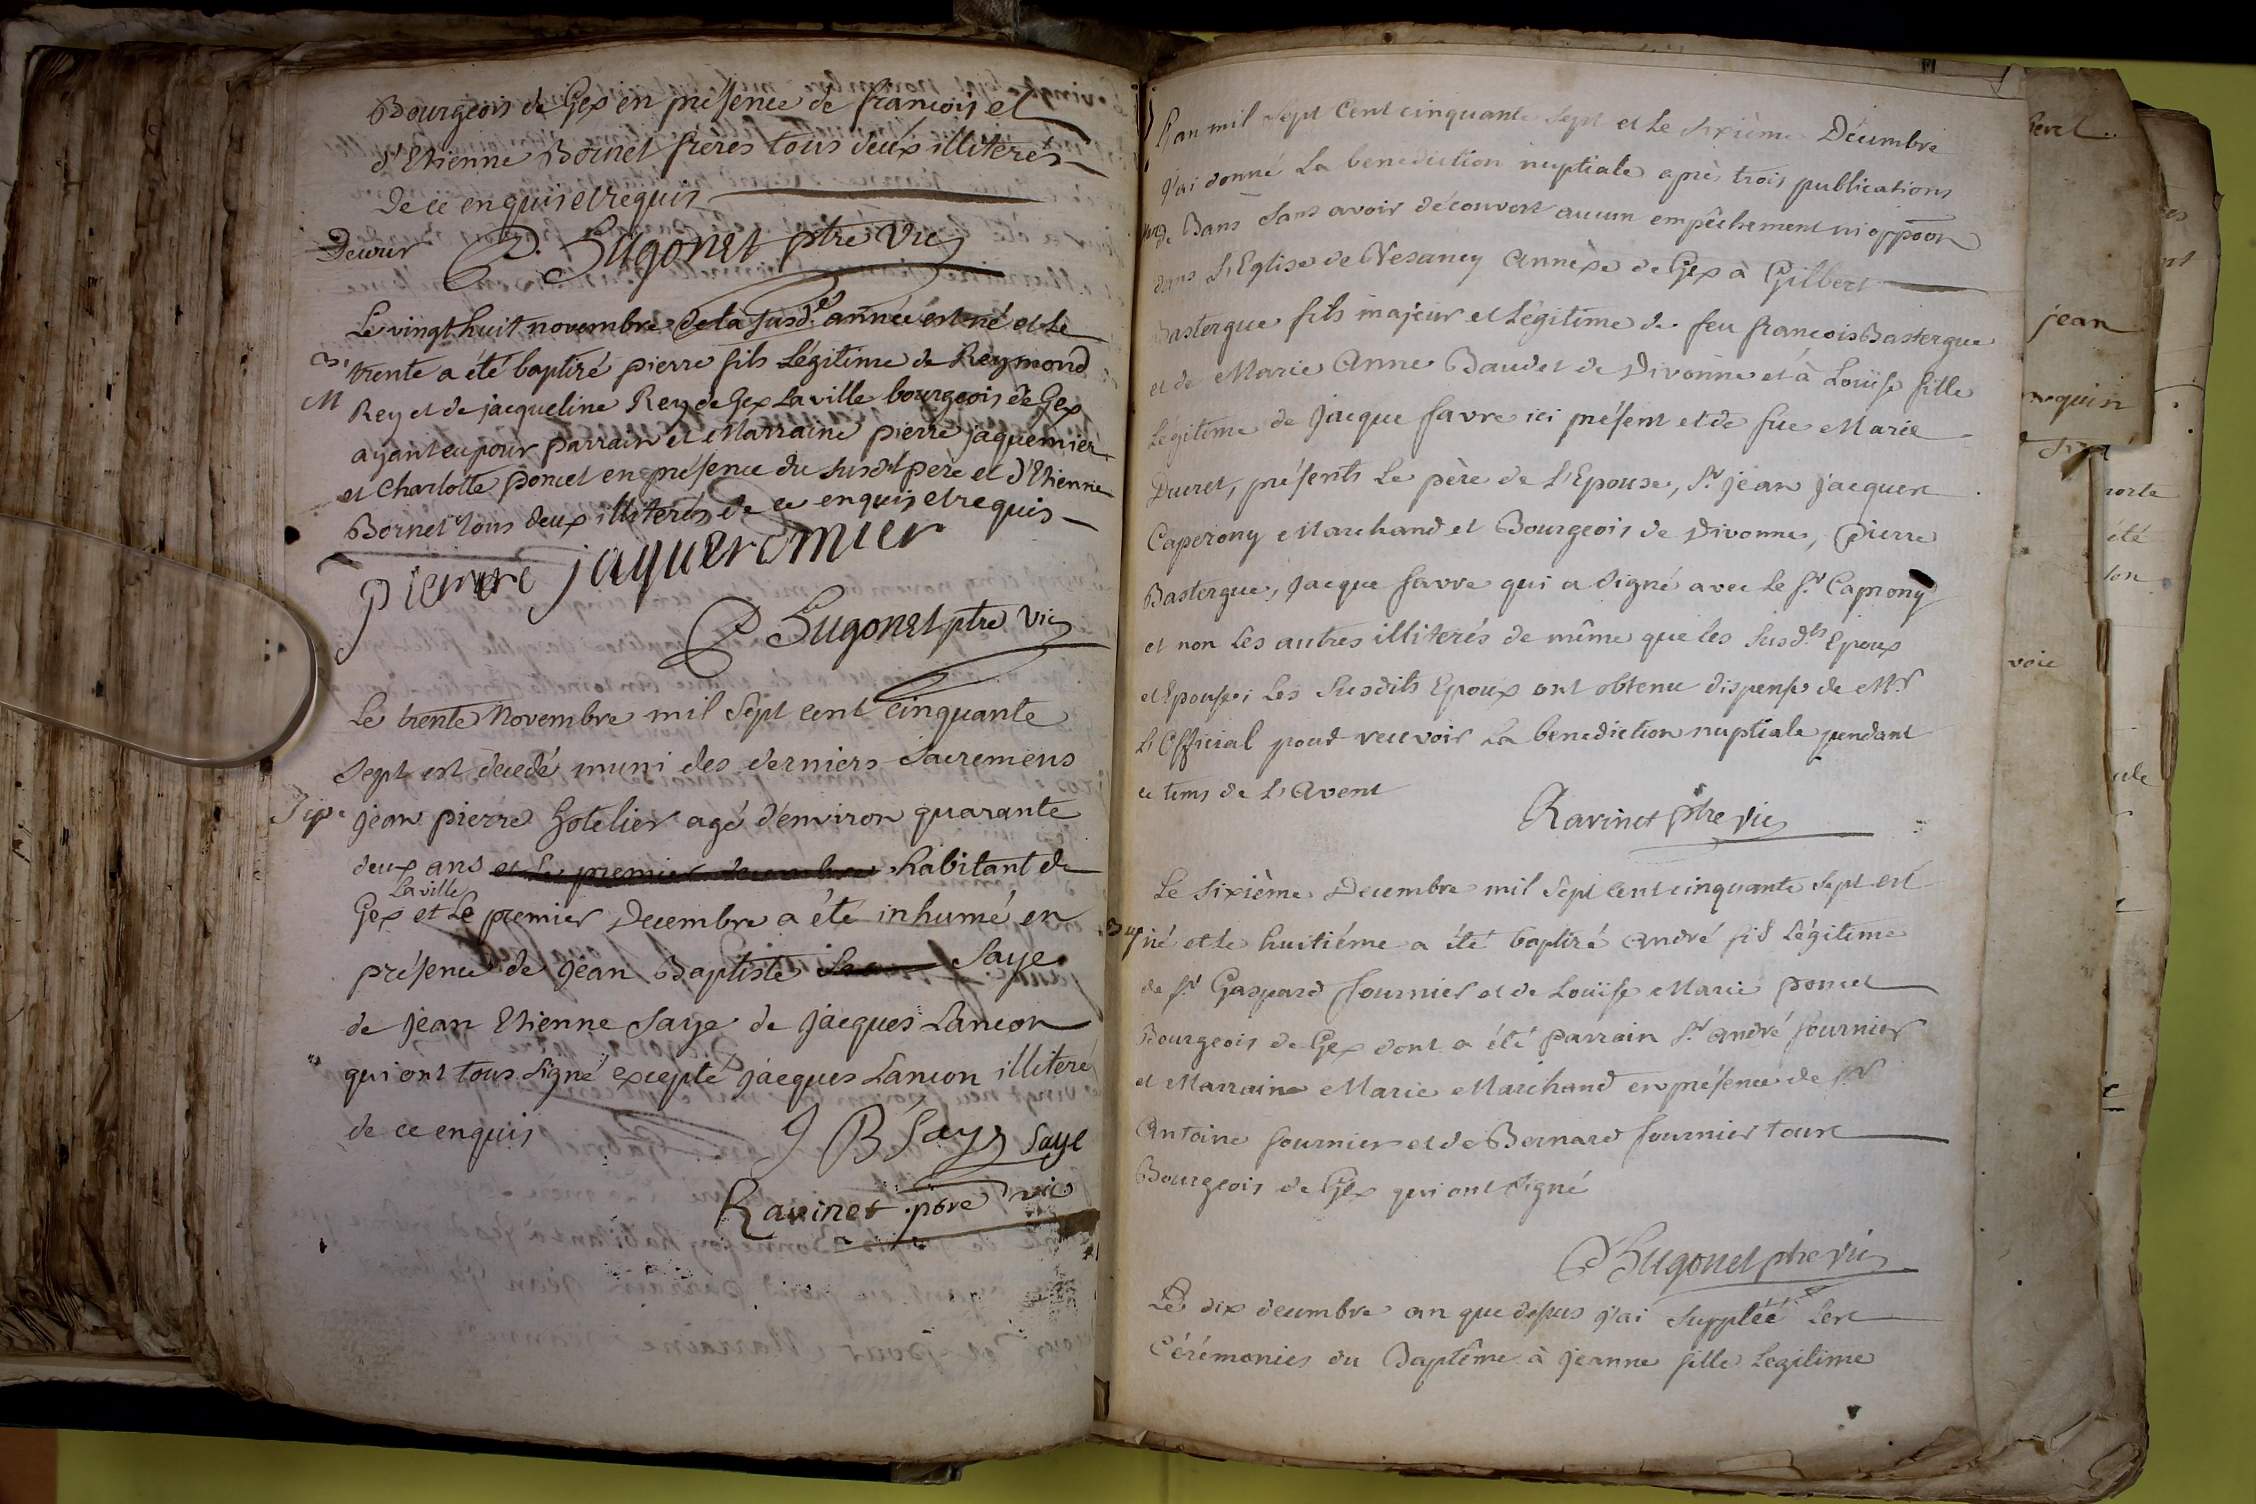 Bourgeois de Gex en présence de francois et
d'Etienne Bornet freres tous deux illiterés
de ce enquis et requis
P. Sugonet ptre Vic
Le vingt huit novembre de la susd.e année est né et le
B.
trente a été baptizé pierre fils Légitime de Reymond
M
Rey et de jacqueline Rey de Gex La ville bourgeois de Gex
ayant eu pour parrain et Marraine pierre jaquemier
et Charlotte poncet en présence du susdit père et d'Etienne
Bornet tous deux illiterés de ce enquis et requis
pierre jaquemier
P Sugonet ptre Vic
Le trente Novembre mil Sept cent cinquante
Sept est décedé muni des derniers Sacremens
Sep.
jean pierre hotelier agé d'environ quarante
deux ans et le premier decembre habitant de
La ville
Gex et Le premier Decembre a été inhumé en
présence de jean Baptiste Saye
de jean Etienne Saye de jacques Lancon
qui ont tous Signé excepté jacques Lancon illiteré
de ce enquis
J B Saye Saye
Ravinet ptre vic
L'an mil Sept Cent cinquante Sept et Le Sixième Décembre
j'ai donné La benediction nuptiale après trois publications
de Bans Sans avoir découvert aucun empêchement ni oppoon
dans L'Eglise de Vesancy Annèxe de Gex à Gilbert
Bastergue fils majeur et Légitime de feu francois Bastergue
et de Marie Anne Baudet de Divonne et à Louïse fille
Légitime de Jacque favre ici présent et de fue Marie
Ducret, présents Le père de L'Epouse, S.r jean jacques
Caperony Marchand et Bourgeois de Divonne, Pierre
Bastergue, Jacque favre qui a Signé avec Le S.r Caprony
et non Les autres illiterés de même que les Susd.ts Epoux
et Epouse; Les Susdits Epoux ont obtenu dispense de Mr
L'Official pour recevoir La benediction nuptiale pendant
ce tems de L'Avent
Ravinet ptre vic
Le Sixième Decembre mil Sept Cent cinquante Sept est
Bap
né et le huitiéme a été baptizé André fils Légitime
de S.r Gaspard fournier et de Louïse Marie poncet
Bourgeois de Gex dont a été parrain S.r André fournier
et Marraine Marie Marchand en présence de S.r
Antoine fournier et de Bernard fournier tous
Bourgeois de Gex qui ont Signé
P Sugonet ptre Vic
Le dix decembre an que dessus j'ai Suppléé Les
Cérémonies du Baptême à jeanne fille Legitime
jean
voie
été